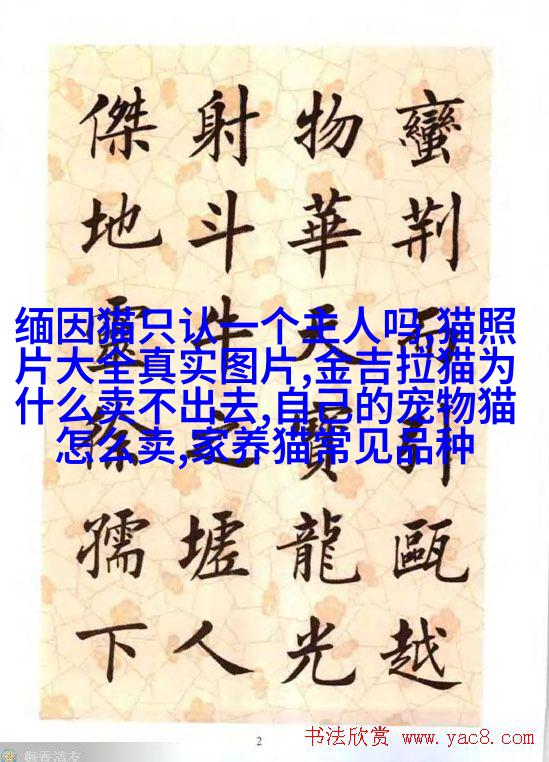 蠻荆而引甌越
物華天寶龍光
射斗牛之墟人
傑地靈徐孺下
缅因猫只认一个主人吗,猫照
片大全真实图片,金吉拉猫为
什么卖不出去,自己的宠物猫
怎么卖,家养猫常见品种
2
书法欣赏 www.yac8.com